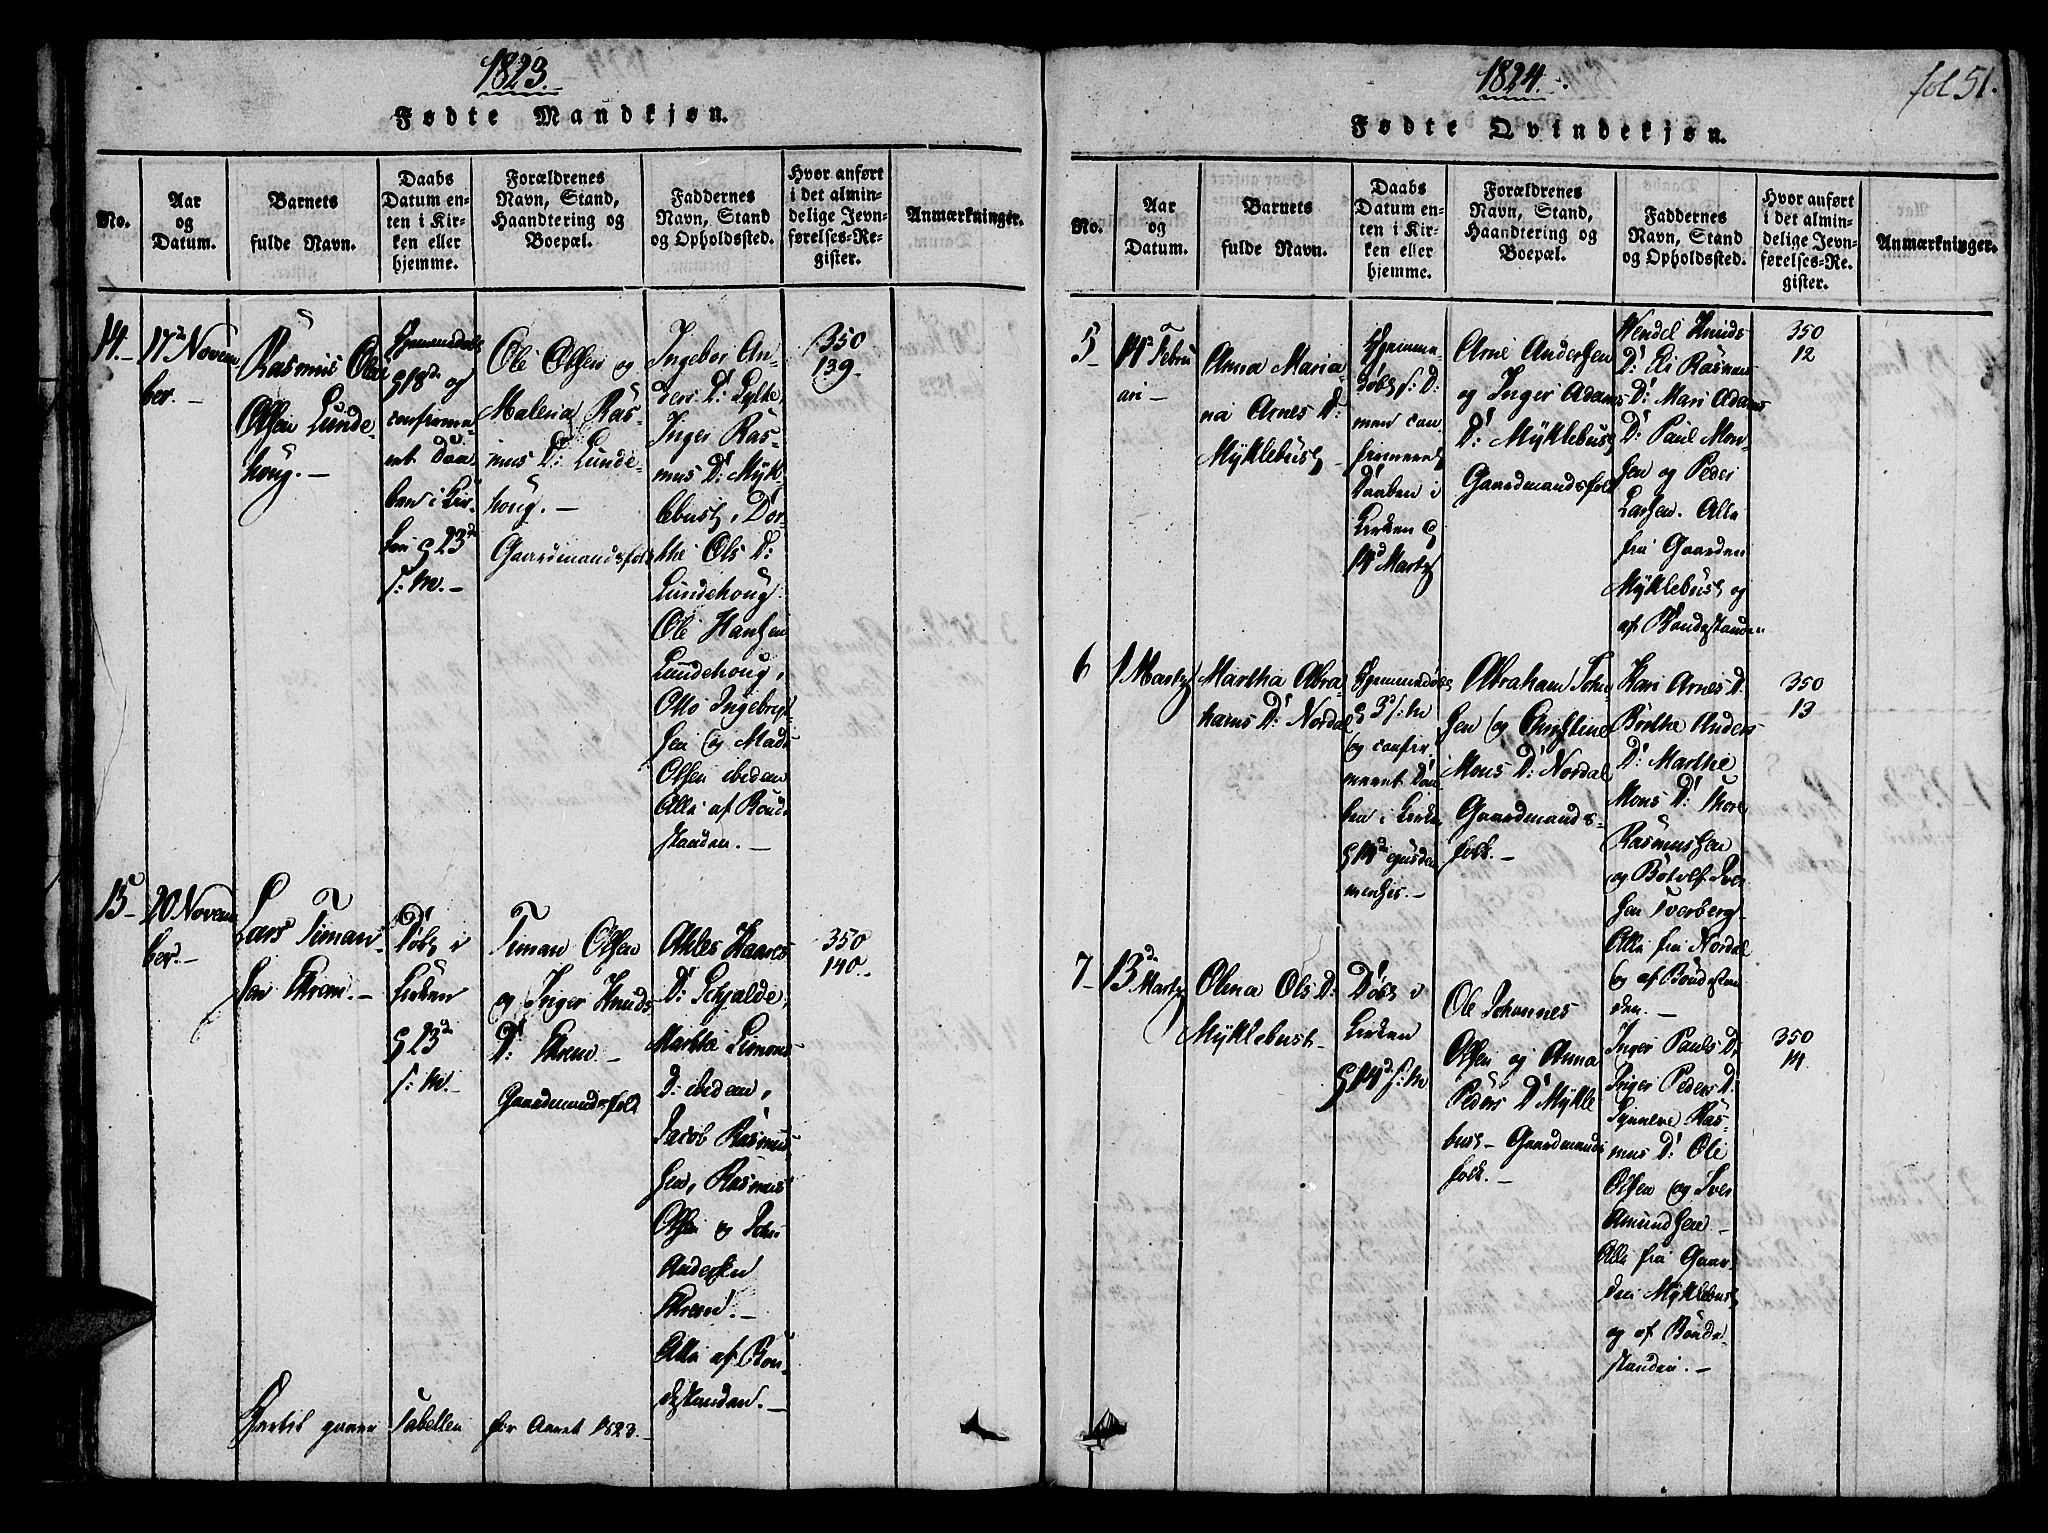 1823.
Fødte Mandkjøn.
No.
Aar
og
Datum.
Barnets
fulde Navn.
Daabs
Datum en-
ten i Kir-
ken eller
hjemme.
Forældrenes
Navn, Stand,
Haandtering og
Boepæl.
Faddernes
Navn, Stand
og Opholdssted.
Hvor anført
i det almin-
delige Jevn-
førelses-Re-
gister.
Anmærkninger.
14.
17de Novem
ber.
Rasmus Ole
Olsen Lunde-
houg.
Hjemmedøbt
18de og
confirme-
ret Daa-
ben i Kir-
ken 23de
s: M.
Ole Olsen og
Malena Ras-
mus D: Lunde-
houg.
Gaardmandsfolk
Ingebor An-
ders D: Lylke,
Inger Ras-
mus D: Mykl-
lebust, Dor-
the Ols D:
Lundehoug
Ole Hansen
Lundehoug,
Otto Ingebrigt-
sen og Mads
Olsen ibidem
Alle af Bonde
standen.
350
139.
15
20 Novem
ber.
Lars Timan-
sen Ekrem.
Døbt i
Kirken
23de
s: M.
Timan Olsen
og Inger Knuds
D: Ekrem
Gaardmandsfolk
Haares
D: Schjølde,
Marthe Simons
D: ibidem,
Jacob Rasmus-
sen, Rasmus
Olsen og John
Andersen
Ekrem.
Alle af Bon-
destanden.
350
140.
Hertil gaaer Tabellen for Aaret 1823.
1824.
fol 51.
Fødte Qvindekjøn.
No.
Aar
og
Datum.
Barnets
fulde Navn.
Daabs
Datum en-
ten i Kir-
ken eller
hjemme.
Forældrenes
Navn, Stand,
Haandtering og
Boepæl.
Faddernes
Navn, Stand
og Opholdssted.
Hvor anført
i det almin-
delige Jevn-
førelses-Re-
gister.
Anmærkninger.
5
14de Febru
ari
Anna Maria-
na Arnes D:
Myklebust
Hjemme-
døbt s: D:
men con
firmeret
Daaben i
Kirken
14d Marty
Arne Andersen
og Inger Adams
D: Myklebust
Gaardmandsfolk
Wendel Knuds
D: Rasmus
D: Mari Adams
D: Paul Mon-
sen og Peder
Larsen. Alle
fra Gaarden
Myklebust og
af Bondestanden
350
12
6
1 Marty
Martha Abra
hams D: Nordal
Hjemmedøbt
3 s: M
og confir-
meret Daa-
ben i Kirken
14de ejusdem
mensis.
Abraham John
sen og Christine
Mons D: Nordal
Gaardmands-
folk.
Kari Arnes D:
Brithe Anders
D: Marthe
Mons D: Thore
Rasmussen
og Botolf Iver
sen Tverberg
Alle fra Nordal
og af Bondestan
den.
350
13
7
13de
Marty
Olina Ols D:
Myklebust
Døbt i
Kirken
14d s: M
Ole Johannes
Olsen og Anna
Peders D: Mykle
bust Gaardmands
folk.
Inger Pauls D:
Inger Peders D:
Synneve Ras-
mus D: Ole
Olsen og Iver
Amundsen.
Alle fra Gaar-
den Myklebust
og af Bonde
standen.
350
14.